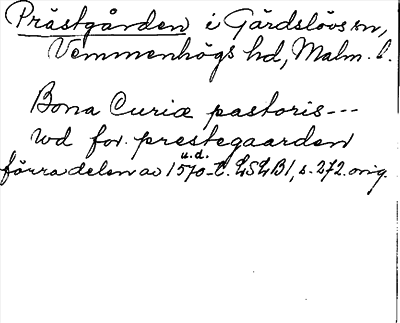 Prästgården i Gärdslövs sn,
Vemmenhögs hd, Malm. l.
Bona Curiæ pastoris---
wd for. prestegaarden
u.d.
förra delen av 1570-t. LSLB1, s. 272. orig.